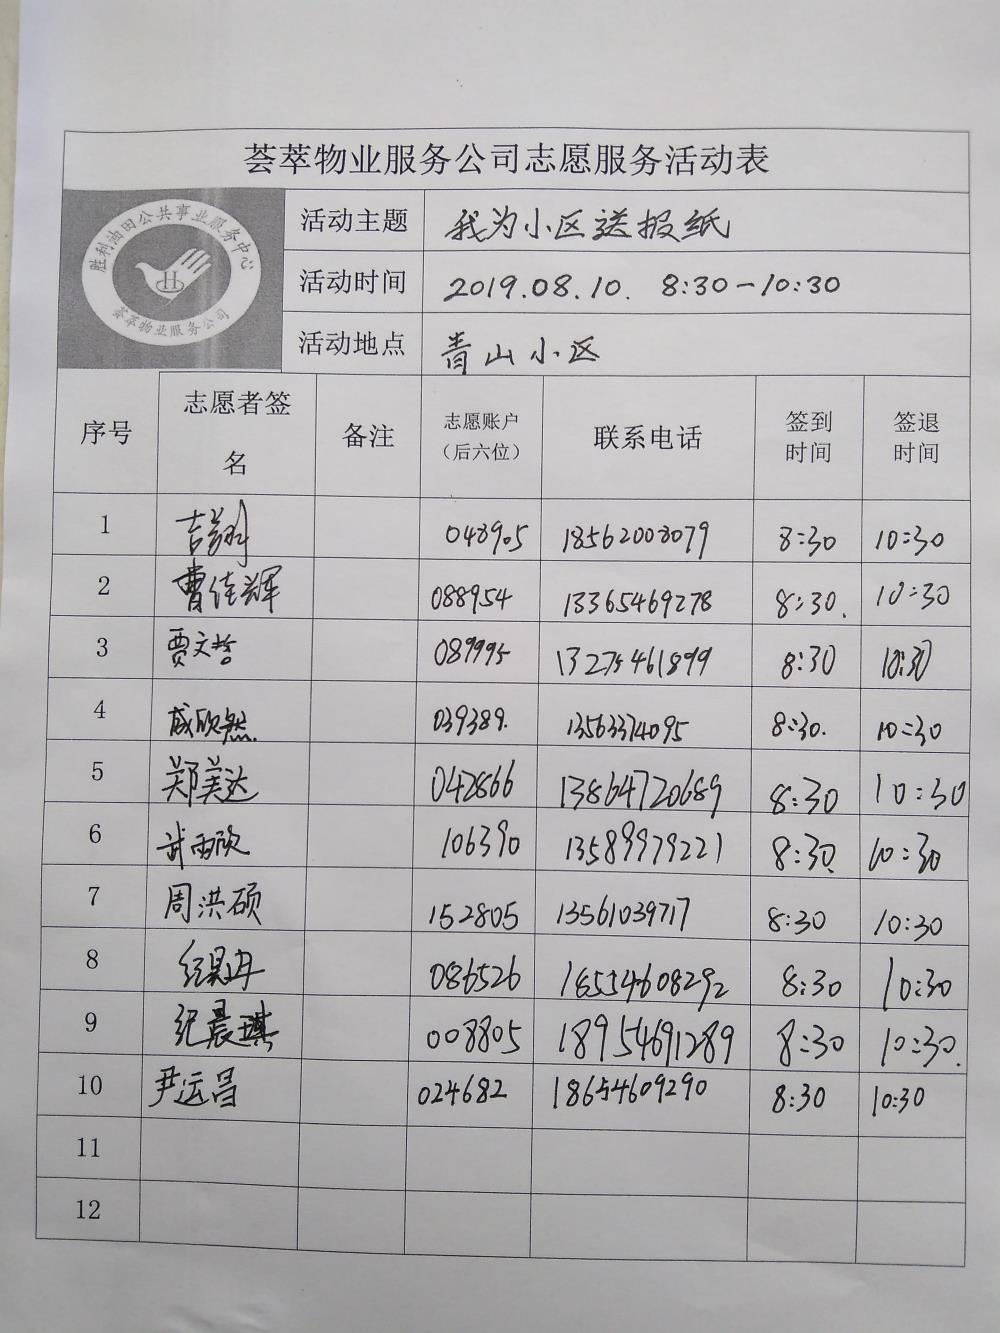 荟萃物业服务公司志愿服务活动表
胜利油田公共事业服务中心
荟萃物业服务公司
活动主题 我为小区送报纸
活动时间 2019.08.10. 8:30-10:30
活动地点 青山小区
序号 志愿者签名 备注 志愿账户（后六位） 联系电话 签到时间 签退时间
1 吉翔 043905 18562003079 8:30 10:30
2 曹佳辉 088954 13365469278 8:30. 10:30
3 贾文哲 089995 13275461899 8:30 10:30
4 成欣然. 039389. 13563374095 8:30. 10:30
5 郑美达 042866 13864720689 8:30 10:30
6 武雨欣 106390 13589979221 8:30 10:30
7 周洪硕 152805 13561039717 8:30 10:30
8 086526 18554608292 8:30 10:30
9 纪晨琪 008805 18954691289 8:30 10:30.
10 尹运昌 024682 18654609290 8:30 10:30
11
12